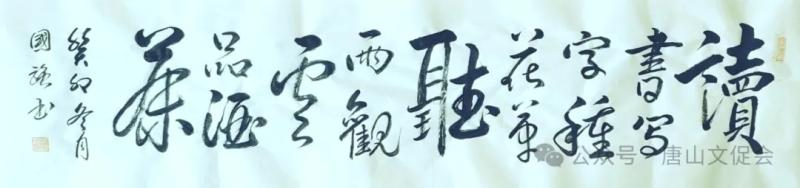 讀
書写
字種
花草
聽
雨觀
雲
品酒
茶
癸卯冬月
國書
公众号·唐山文促会